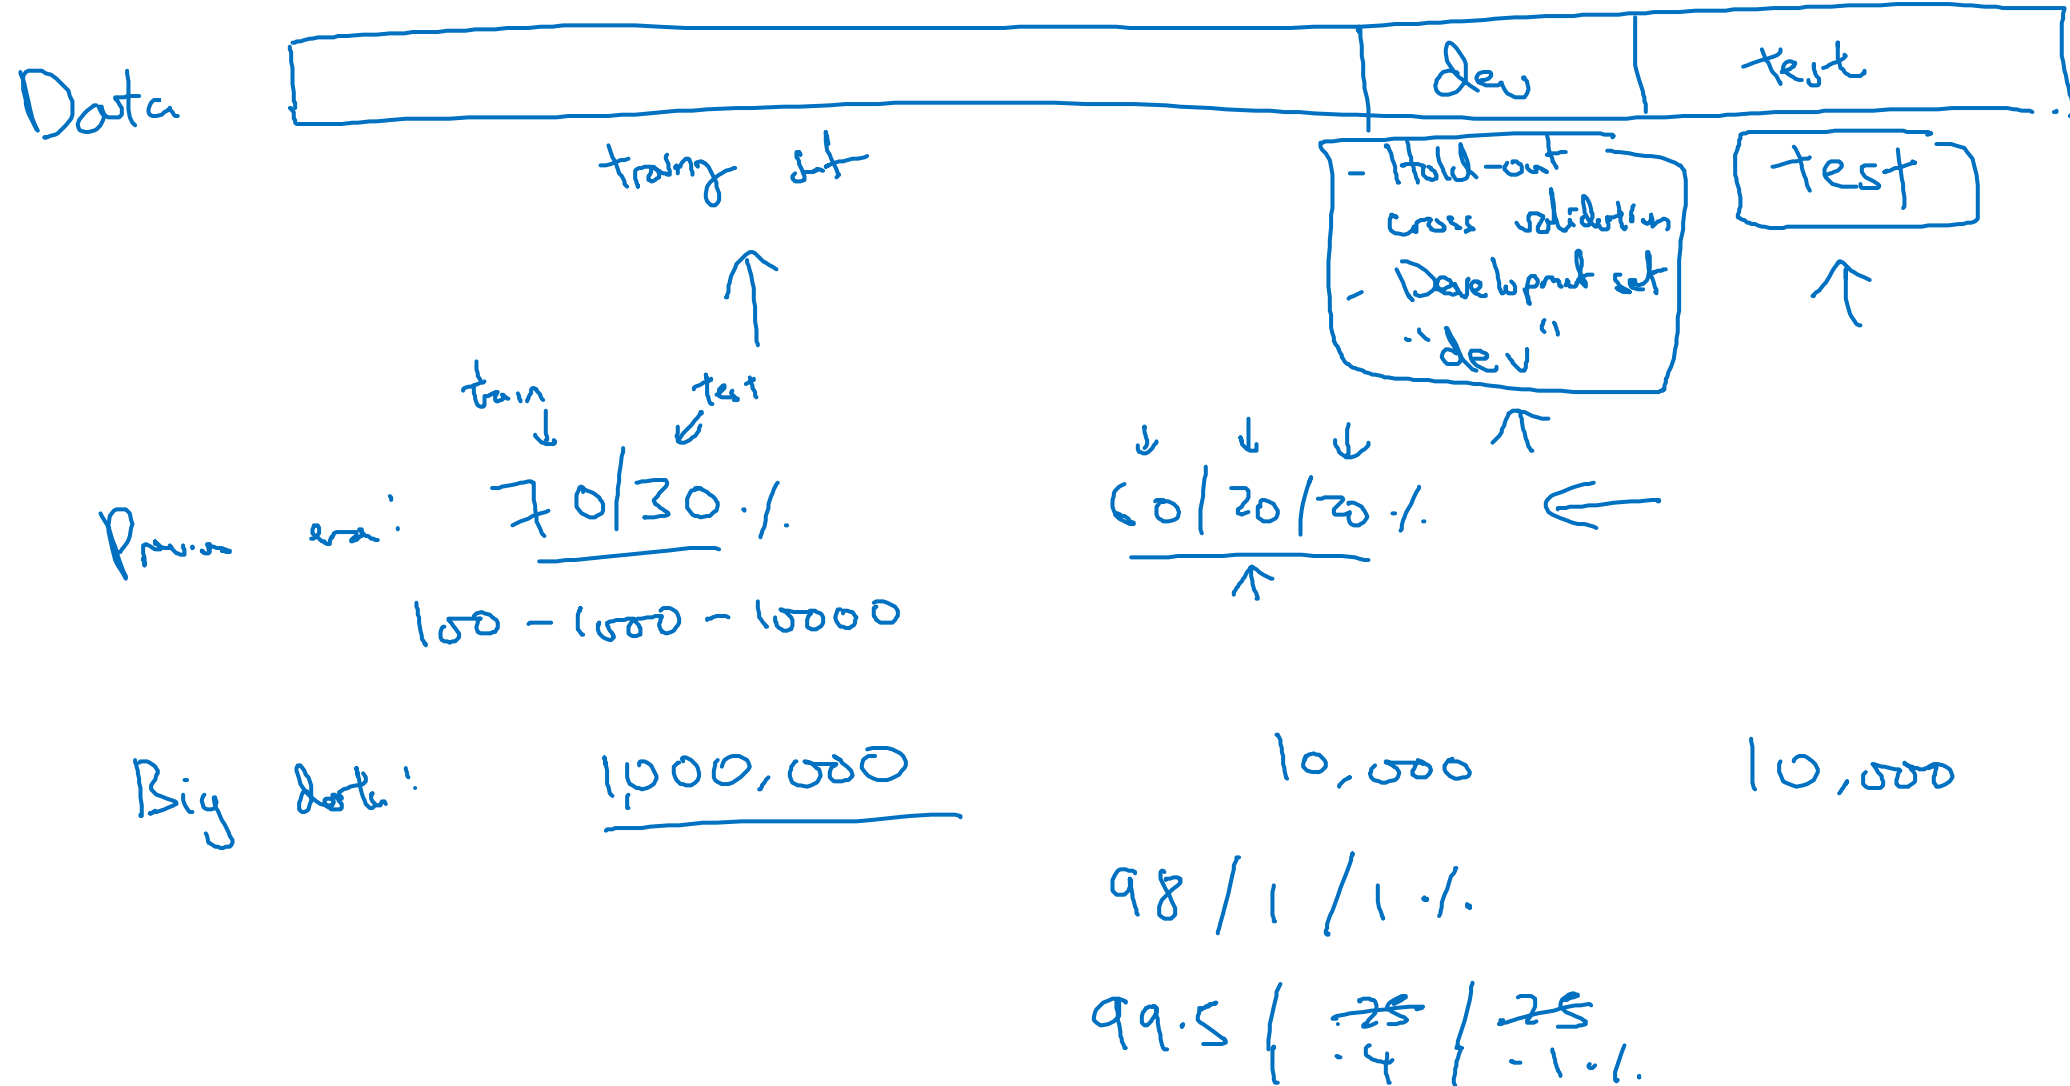 Data
dev
test
training set
- Hold-out
cross validation
- Development set
"dev"
test
train
test
Previous era:
70/30 %
60/20/20 %
100-1000-10000
Big data:
1,000,000
10,000
10,000
98/1/1 %
99.5 / .25 / .25
.4 / .1 %